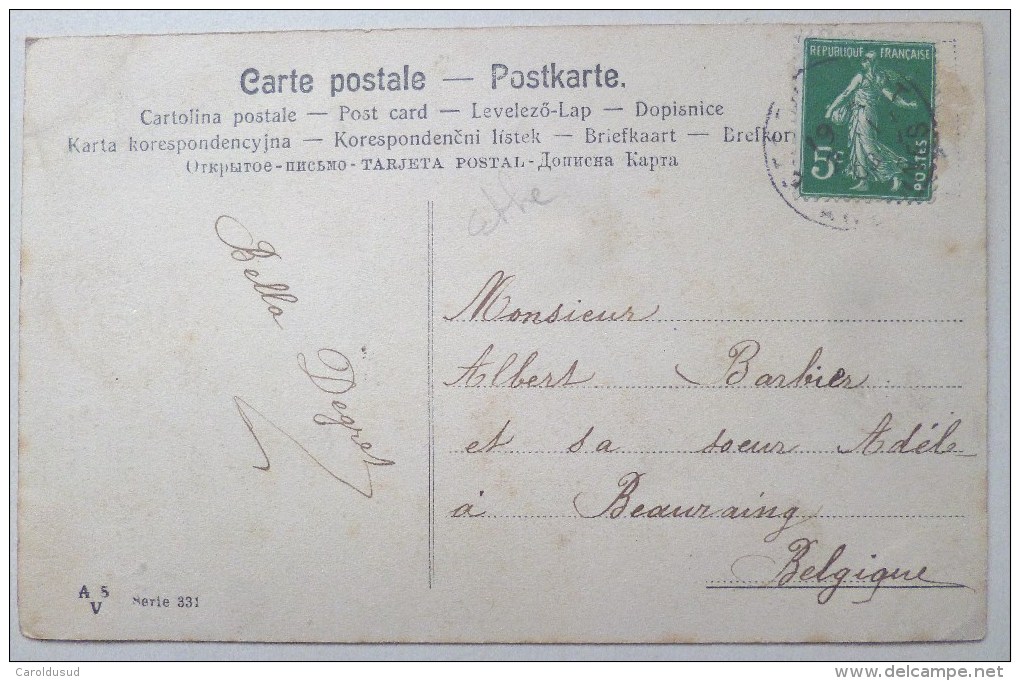 Carte postale — Postkarte.
Cartolina postale — Post card — Levelező-Lap — Dopisnice
Karta korespondencyjna — Korespondenčni lístek — Briefkaart — Brefkor
Открытое-письмо-TARJETA POSTAL-Дописна Карта
RÉPUBLIQUE FRANÇAISE
5c
POSTES
Bella
Degret
Monsieur
Albert Barbier
et sa soeur Adèl
à Beauraing
Belgique
A S
V
Serie 331
Caroldusud
www.delcampe.net